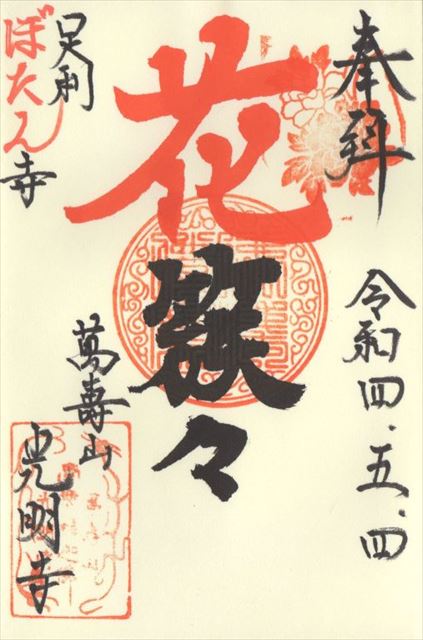 奉拝
令和四・五・四
花数々
足利
ぼたん寺
萬壽山
光明寺